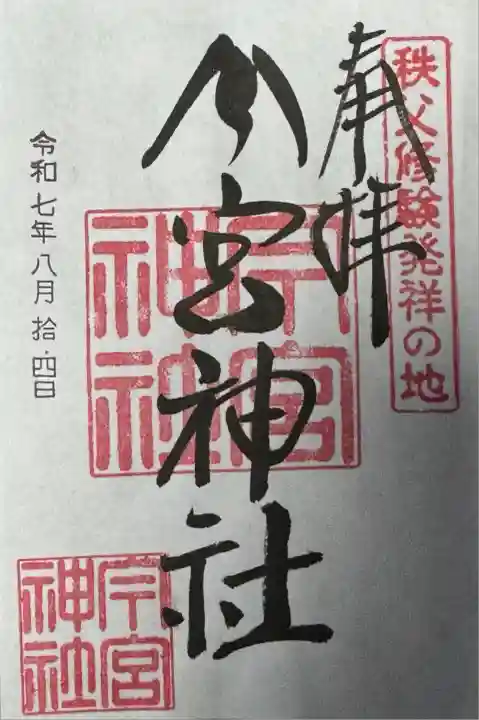 秩父修験発祥の地
奉拝
今宮神社
今宮
神社
令和七年八月拾四日
今宮
神社